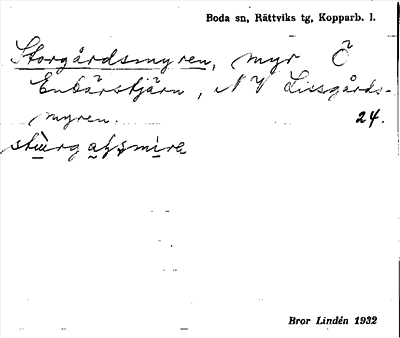 Boda sn, Rättviks tg, Kopparb. l.
Storgårdsmyren, myr Ö
Enbärstjärn, NV Lissgårds-
myren. 24.
Bror Lindén 1932